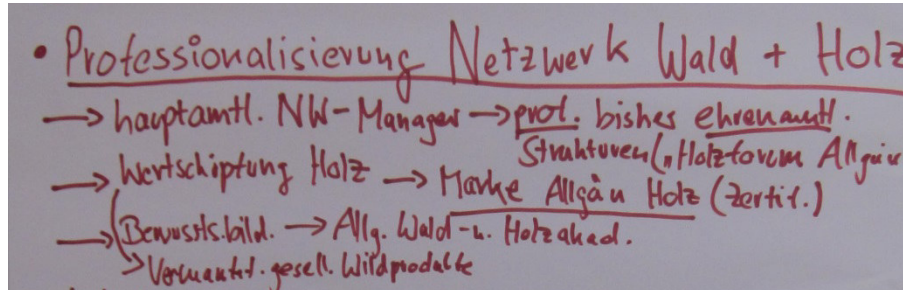 • Professionalisierung Netzwerk Wald + Holz
→ hauptamtl. NW-Manager → prof. bisher ehrenamtl.
Strukturen („Holzforum Allgäu
→ Wertschöpfung Holz → Marke Allgäu Holz (Zertif.)
→ Bewussts.bild. → Allg. Wald- u. Holzakad.
→ gesell. Wildprodukte